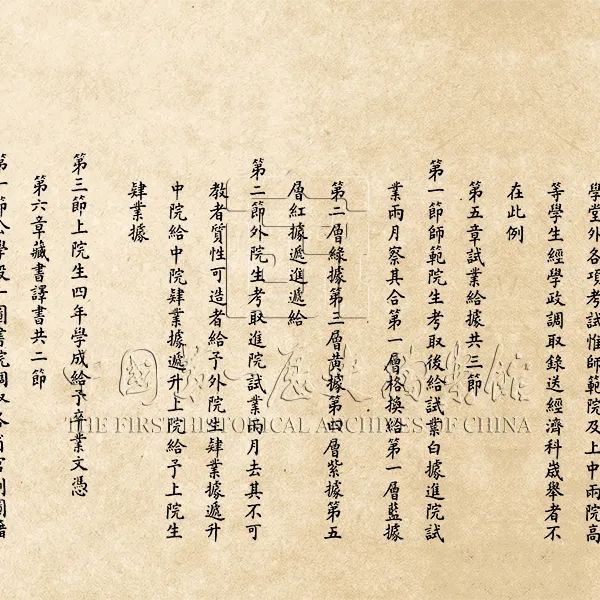 學堂外各項考試惟師範院及上中兩院高
等學生經學政調取錄送經濟科歲舉者不
在此例
第五章試業給據共三節
第一節師範院生考取後給試業白據進院試
業兩月察其合第一層格換給第一層藍據
第二層綠據第三層黃據第四層紫據第五
層紅據遞進遞給
第二節外院生考取進院試業兩月去其不可
教者質性可造者給予外院生肄業據遞升
中院給中院肄業據遞升上院給予上院生
肄業據
第三節上院生四年學成給予卒業文憑
第六章藏書譯書共二節
第一節公學設一圖書院調取各省官刻圖籍
中國第一歷史檔案館
THE FIRST HISTORICAL ARCHIVES OF CHINA